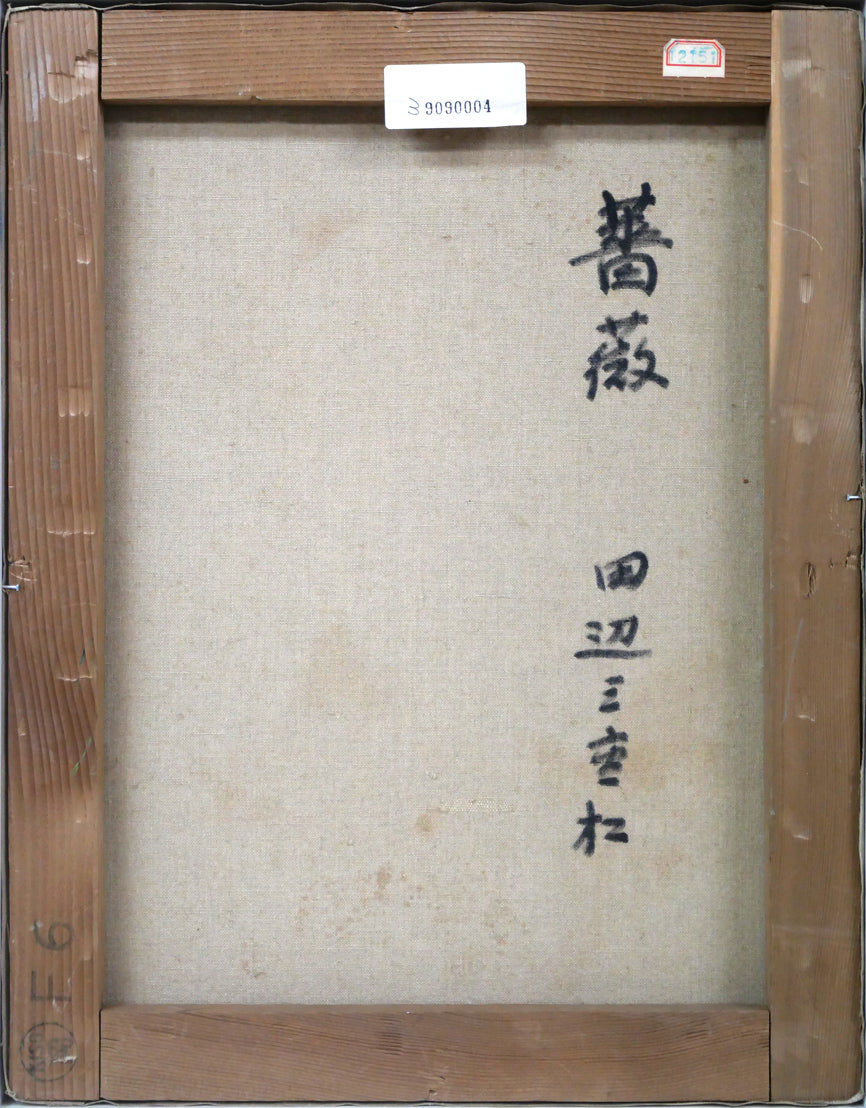 12151
39090004
薔薇
田辺三重松
F6